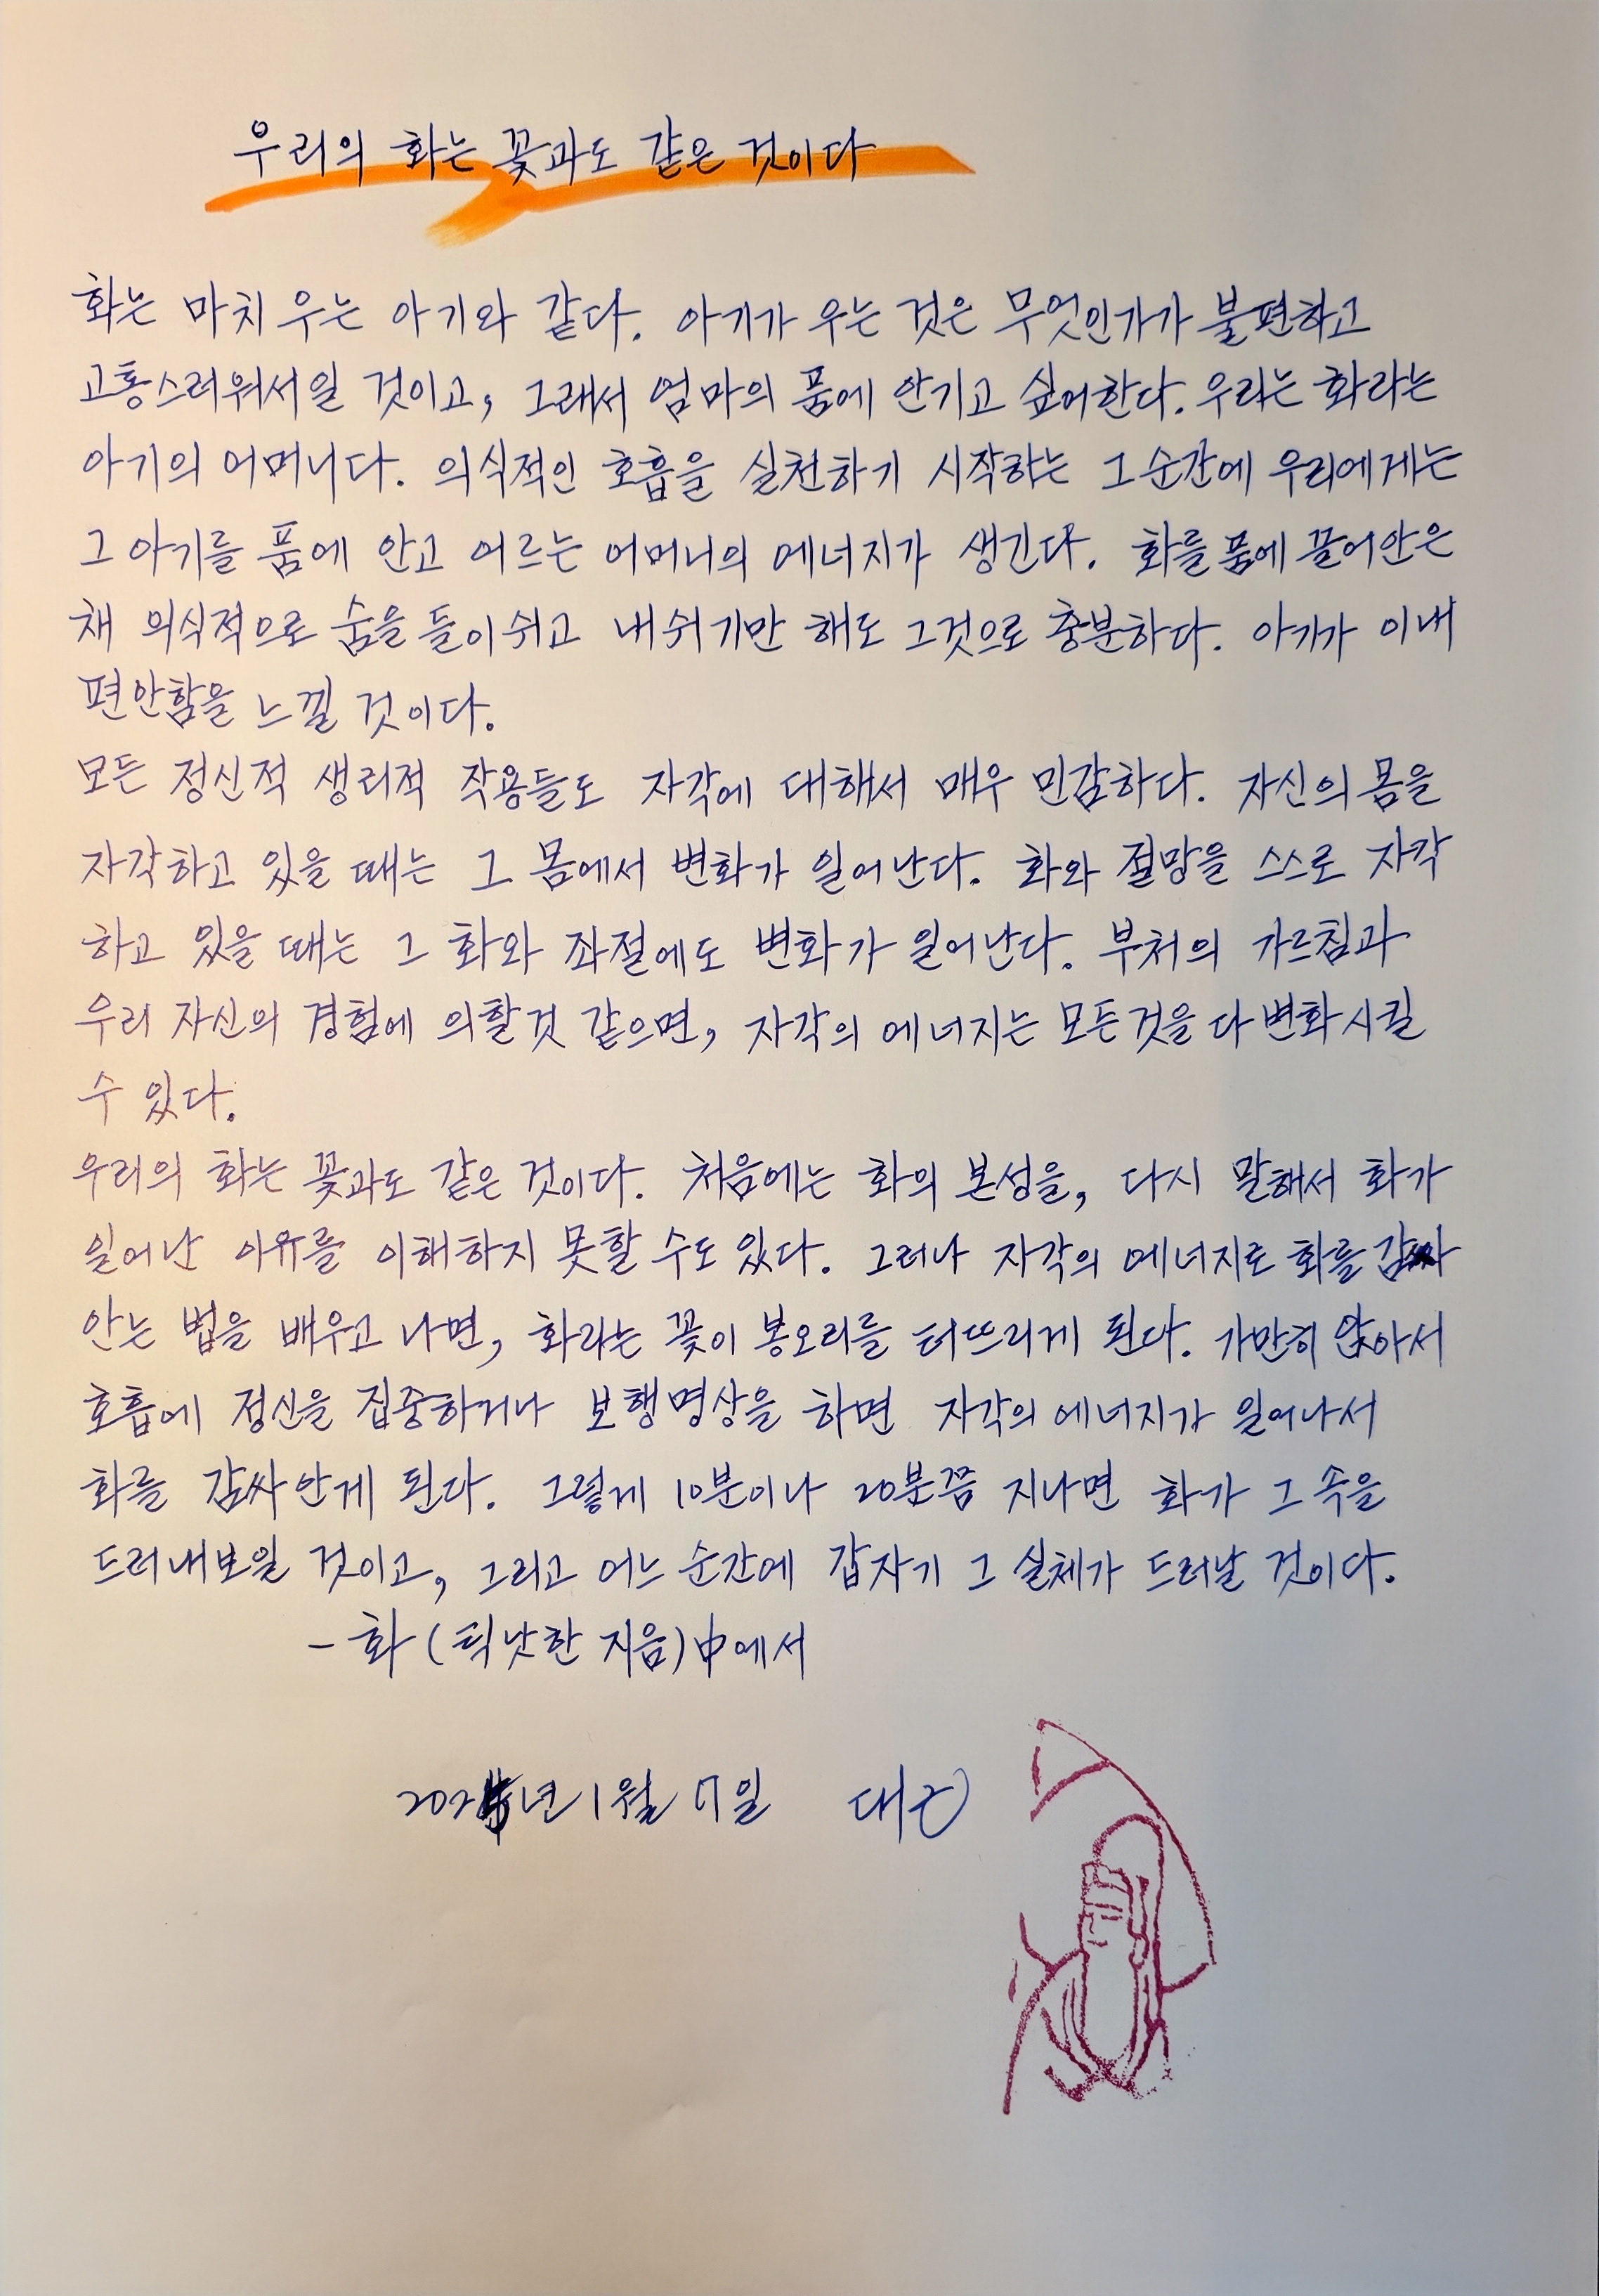 우리의 화는 꽃과도 같은 것이다
화는 마치 우는 아기와 같다. 아기가 우는 것은 무엇인가가 불편하고
고통스러워서일 것이고, 그래서 엄마의 품에 안기고 싶어한다. 우리는 화라는
아기의 어머니다. 의식적인 호흡을 실천하기 시작하는 그 순간에 우리에게는
그 아기를 품에 안고 어르는 어머니의 에너지가 생긴다. 화를 품에 끌어안은
채 의식적으로 숨을 들이쉬고 내쉬기만 해도 그것으로 충분하다. 아기가 이내
편안함을 느낄 것이다.
모든 정신적 생리적 작용들도 자각에 대해서 매우 민감하다. 자신의 몸을
자각하고 있을 때는 그 몸에서 변화가 일어난다. 화와 절망을 스스로 자각
하고 있을 때는 그 화와 좌절에도 변화가 일어난다. 부처의 가르침과
우리 자신의 경험에 의할것 같으면, 자각의 에너지는 모든것을 다 변화시킬
수 있다.
우리의 화는 꽃과도 같은 것이다. 처음에는 화의 본성을, 다시 말해서 화가
일어난 이유를 이해하지 못할 수도 있다. 그러나 자각의 에너지로 화를 감싸
안는 법을 배우고 나면, 화라는 꽃이 봉오리를 터뜨리게 된다. 가만히 앉아서
호흡에 정신을 집중하거나 보행명상을 하면 자각의 에너지가 일어나서
화를 감싸안게 된다. 그렇게 10분이나 20분쯤 지나면 화가 그 속을
드러내보일 것이고, 그리고 어느 순간에 갑자기 그 실체가 드러날 것이다.
- 화 (틱낫한 지음) 中에서
2025년 1월 17일